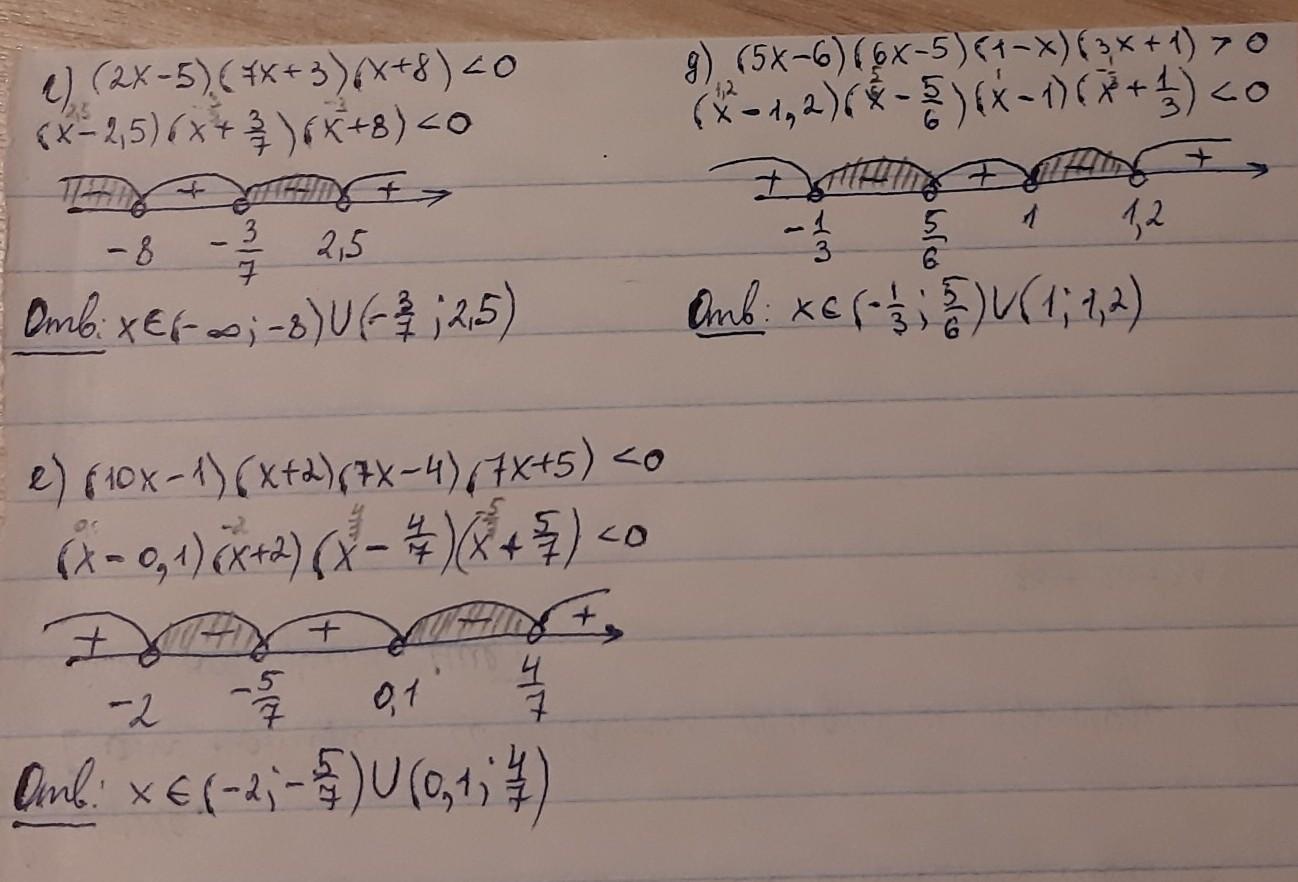 с) (2x-5)(7x+3)(x+8)<0
(x-2,5)(x+3/7)(x+8)<0
- + - +
-8 -3/7 2,5
Отв: x∈(-∞;-8)∪(-3/7;2,5)
д) (5x-6)(6x-5)(1-x)(3x+1)>0
1,2 5/6 1 -1/3
(x-1,2)(x-5/6)(x-1)(x+1/3)<0
+ - + - +
-1/3 5/6 1 1,2
Отв: x∈(-1/3;5/6)∪(1;1,2)
е) (10x-1)(x+2)(7x-4)(7x+5)<0
-2 4/7 -5/7
(x-0,1)(x+2)(x-4/7)(x+5/7)<0
+ - + - +
-2 -5/7 0,1 4/7
Отв: x∈(-2;-5/7)∪(0,1;4/7)